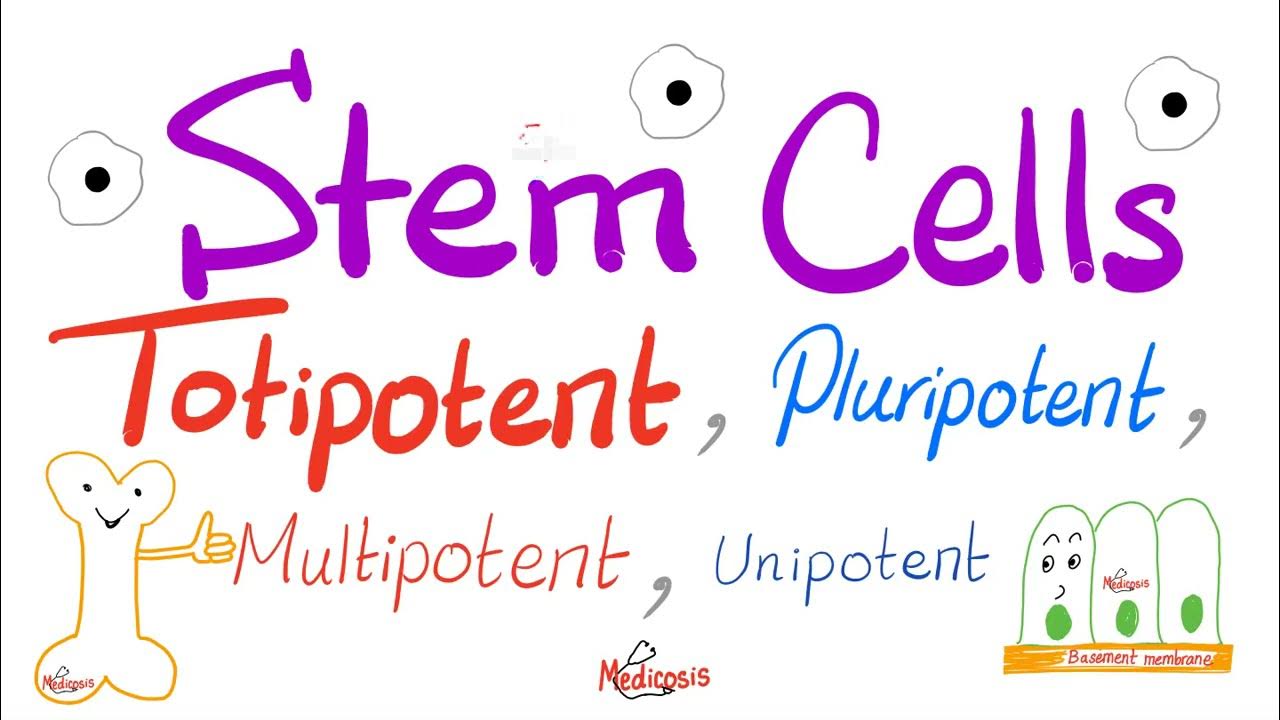 Stem Cells
Totipotent, Pluripotent,
Multipotent, Unipotent
Medicosis
Basement membrane
Medicosis
Medicosis